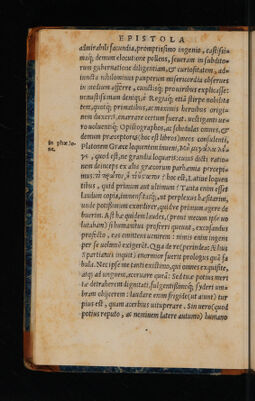 EPISTOLA
admirabili facundia, promptissimo ingenio, castissimaq́;
demum elocutione pollens, seueram in subditorum
gubernatione diligentiam, & curiositatem, adiuncta
nihilominus pauperum misericordia obserues
in medium afferre, cunctisq́; pro uiribus explicasse:
uenustissimam deniq;, & Regiāq; etiā stirpe nobilitatem,
quoiq; primatibus, ac maximis heroibus originem
duxeris, enarrare certum fuerat. uestiganti uero
uoluentiq́; Opisthographos, ac schedulas omnes, &
demum præceptoris (hoc est libros) meos consulenti,
In phæ lo
ne.
Platonem Græce loquentem inueni,
quod est, ne grandia loquaris: cuius dicti rationem
deinceps ex alio græcorum parœmia percepimus:
hoc est, Latiue loquentibus,
quid primum aut ultimum? Tanta enim esset
laudum copia, immensitasq́;, ut perplexus hæsitarem,
unde potissimum exordirer, quóue primum eruere debuerim.
Ast hæ quidem laudes, (prout mecum ipse uolutabam)
si humanitus proferri queant, excusando,
profecto, eas omittens uenerer: nimis enim ingens
per se uolumē exigerāt. Qua de re (perinde ac Schus
Spartiatus inquit) enormior fuerit prologus quā fabula.
Nec ipse me tanti existimo, qui omnes exquisite,
atq; ad unguem, aceruare queā: Sed tuæ potius meritæ
detraherem dignitati, fulgentissimoq́; syderi umbram
obijcerem: laudare enim frigide (ut aiunt) turpius
est, quam acerbius uituperare. Sin uero (quod
potius reputo, ac neminem latere autumo) humano